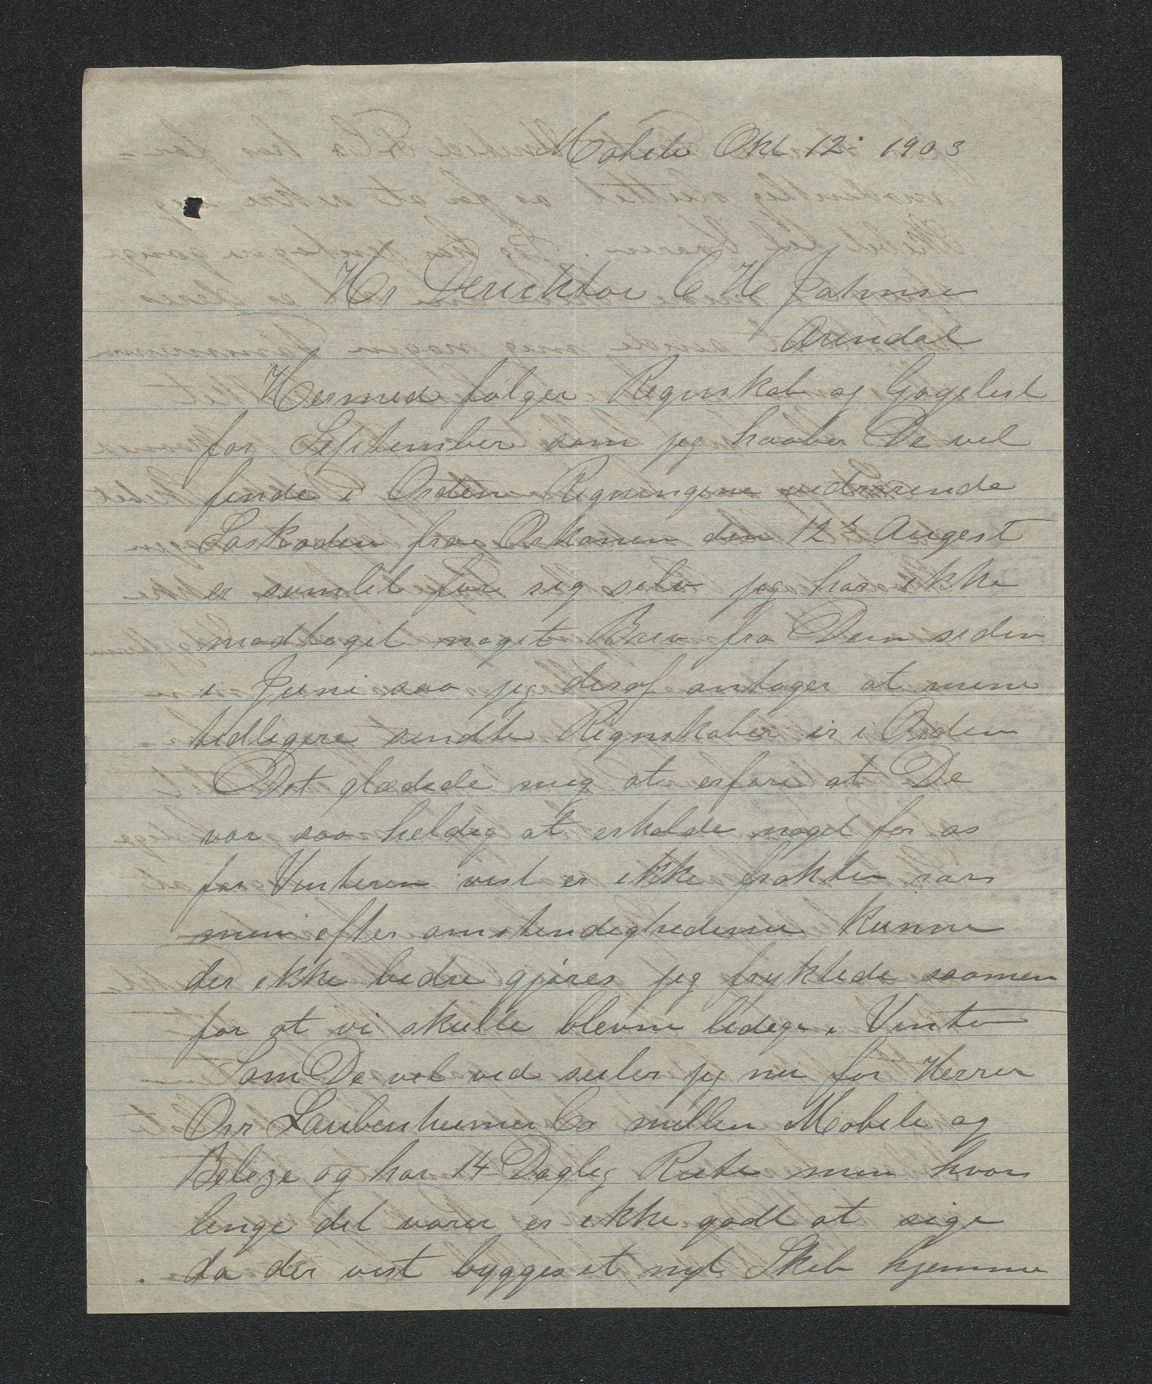 Mobile Okt 12' 1903
Hr Dericktor C H Johnsen
Arendal
Hermed følger Regnskab og Gagelist
for September som jeg haaber De vel
finde i Orden Regningene vedrørende
Laskaden fra Orkanen den 12te August
er samlet for sig selv jeg har ikke
modtaget noget Brev fra Dem siden
i Juni saa jeg deraf antager at mine
tidligere sendte Regnskaber er i Orden
Det glædede mig at erfare at De
var saa heldig at erholde noget for os
for Vinteren vist er ikke frakten rar
men efter omstendighederne kunne
der ikke bedre gjøres jeg fryktede saamen
for at vi skulle blevne ledige i Vinter
Som De vel ved seiler jeg nu for Herrer
Orr Laubenheimer Co mellem Mobile og
Beleze og har 14 Dagleg Rute men hvor
lenge det varer er ikke godt at sige
da der vist bygges et nyt Skib hjemme